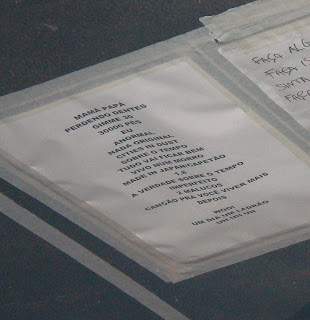 MAMÃ PAPÁ
PERDENDO DENTES
GIMME 30
30000 PÉS
EU
ANORMAL
NADA ORIGINAL
CITIES IN DUST
SOBRE O TEMPO
TUDO VAI FICAR BEM
VIVO NUM MORRO
MADE IN JAPAN/CAPETÃO
1.6
A VERDADE SOBRE O TEMPO
IMPERFEITO
2 MALUCOS
CANÇÃO PRA VOCÊ VIVER MAIS
DEPOIS
WOO!
UM DIA UM LADRÃO
UH UH UH
FAÇA
FAÇA
SINTA
FAÇA